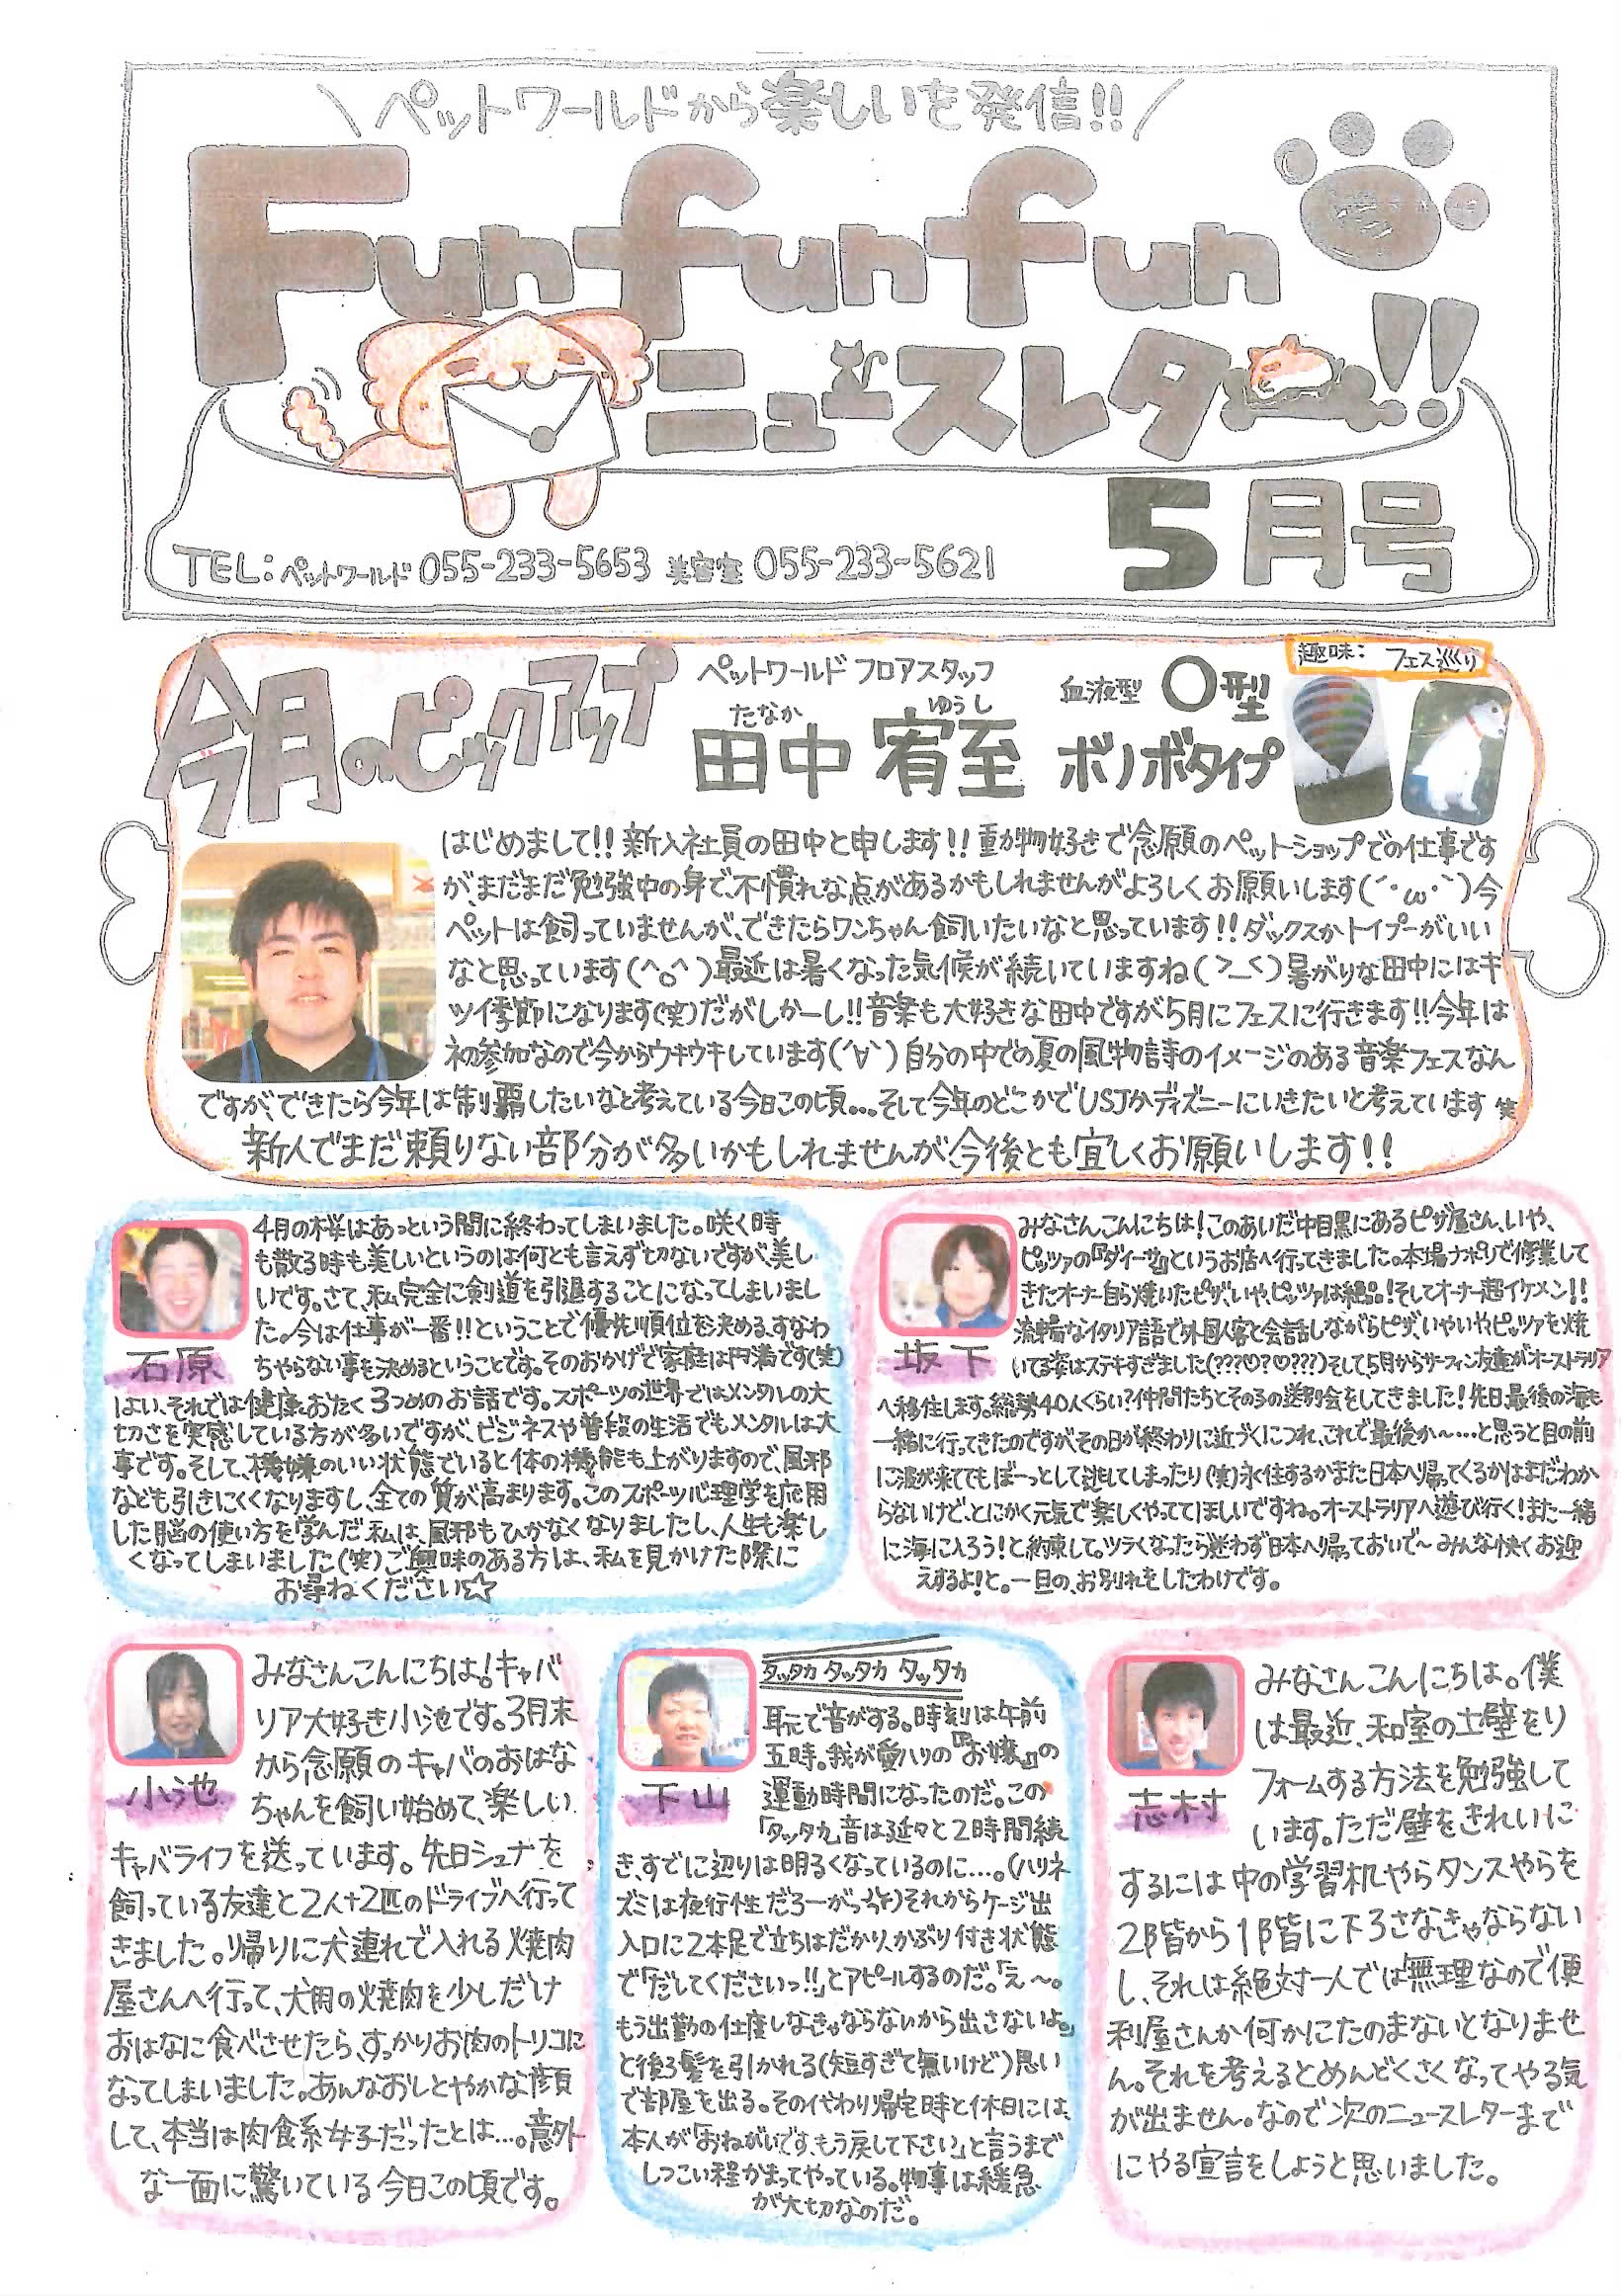 ペットワールドから楽しいを発信!!
Fun fun fun
ニュースレター!!
5月号
TEL:ペットワールド 055-233-5653 美容室 055-233-5621
今月のピックアップ
ペットワールド フロアスタッフ
たなか ゆうし
田中 宥至
血液型 O型
ボノボタイプ
趣味: フェス巡り
はじめまして!!新入社員の田中と申します!!動物好きで念願のペットショップでの仕事です
が、まだまだ勉強中の身で、不慣れな点があるかもしれませんがよろしくお願いします(´・ω・`)今
ペットは飼っていませんが、できたらワンちゃん飼いたいなと思っています!!ダックスかトイプーがいい
なと思っています(^o^)最近は暑くなった気候が続いていますね(>_<)暑がりな田中にはキ
ツイ季節になります(笑)だがしかーし!!音楽も大好きな田中ですが5月にフェスに行きます!!今年は
初参加なので今からウキウキしています(´∀`)自分の中での夏の風物詩のイメージのある音楽フェスなん
ですが、できたら今年は制覇したいなと考えている今日この頃...そして今年のどこかでUSJかディズニーにいきたいと考えています 笑
新人でまだ頼りない部分が多いかもしれませんが、今後とも宜しくお願いします!!
石原
4月の桜はあっという間に終わってしまいました。咲く時
も散る時も美しいというのは何とも言えず切ないですが、美し
いです。さて、私、完全に剣道を引退することになってしまいまし
た。今は仕事が一番!!ということで優先順位を決める、すなわ
ちやらない事を決めるということです。そのおかげで家庭は円満です(笑)
はい、それでは健康おたく3つめのお話です。スポーツの世界ではメンタルの大
切さを実感している方が多いですが、ビジネスや普段の生活でもメンタルは大
事です。そして、機嫌のいい状態でいると体の機能も上がりますので、風邪
なども引きにくくなりますし、全ての質が高まります。このスポーツ心理学を応用
した脳の使い方を学んだ私は、風邪もひかなくなりましたし、人生も楽し
くなってしまいました(笑)ご興味のある方は、私を見かけた際に
お尋ねください☆
坂下
みなさんこんにちは!このあいだ中目黒にあるピザ屋さん、いや、
ピッツァの『ダイーサ』というお店へ行ってきました。本場ナポリで修業して
きたオーナー自ら焼いたピザ、いや、ピッツァは絶品!そしてオーナー超イケメン!!
流暢なイタリア語で外国人客と会話しながらピザ、いやいやピッツァを焼
いてる姿はステキすぎました(???♡?♡???)そして、5月からサーフィン友達がオーストラリア
へ移住します。総勢40人くらい?仲間たちとその子の送別会をしてきました!先日最後の海も
一緒に行ってきたのですが、その日が終わりに近づくにつれ、これで最後か～....と思うと目の前
に波が来てもぼーっとして逃してしまったり(笑)永住するかまた日本へ帰ってくるかはまだわか
らないけど、とにかく元気で楽しくやっててほしいですね。オーストラリアへ遊び行く!また一緒
に海に入ろう!と約束して。ツラくなったら迷わず日本へ帰っておいで～みんな快くお迎
えするよ!と。一旦の、お別れをしたわけです。
小池
みなさんこんにちは!キャバ
リア大好き小池です。3月末
から念願のキャバのおはな
ちゃんを飼い始めて、楽しい
キャバライフを送っています。先日シュナを
飼っている友達と2人+2匹のドライブへ行って
きました。帰りに犬連れで入れる焼肉
屋さんへ行って、犬用の焼肉を少しだけ
おはなに食べさせたら、すっかりお肉のトリコに
なってしまいました。あんなおしとやかな顔
して、本当は肉食系女子だったとは...。意外
な一面に驚いている今日この頃です。
下山
タッタカ タッタカ タッタカ
耳元で音がする。時刻は午前
五時。我が愛ハリの『お嬢』の
運動時間になったのだ。この
「タッタカ」音は延々と2時間続
き、すでに辺りは明るくなっているのに...。(ハリネ
ズミは夜行性だろーがっ汗)それからケージ出
入口に2本足で立ちはだかり、かぶり付き状態
で「だしてくださいっ!!」とアピールするのだ。「え～。
もう出勤の仕度しなきゃならないから出さないよ。」
と後ろ髪を引かれる(短すぎて無いけど)思い
で部屋を出る。その代わり帰宅時と休日には、
本人が「おねがいです、もう戻して下さい」と言うまで
しつこい程かまってやっている。物事は緩急
が大切なのだ。
志村
みなさんこんにちは。僕
は最近、和室の土壁をリ
フォームする方法を勉強して
います。ただ壁をきれいに
するには中の学習机やらタンスやらを
2階から1階に下ろさなきゃならない
し、それは絶対一人では無理なので便
利屋さんか何かにたのまないとなりませ
ん。それを考えるとめんどくさくなってやる気
が出ません。なので次のニュースレターまで
にやる宣言をしようと思いました。